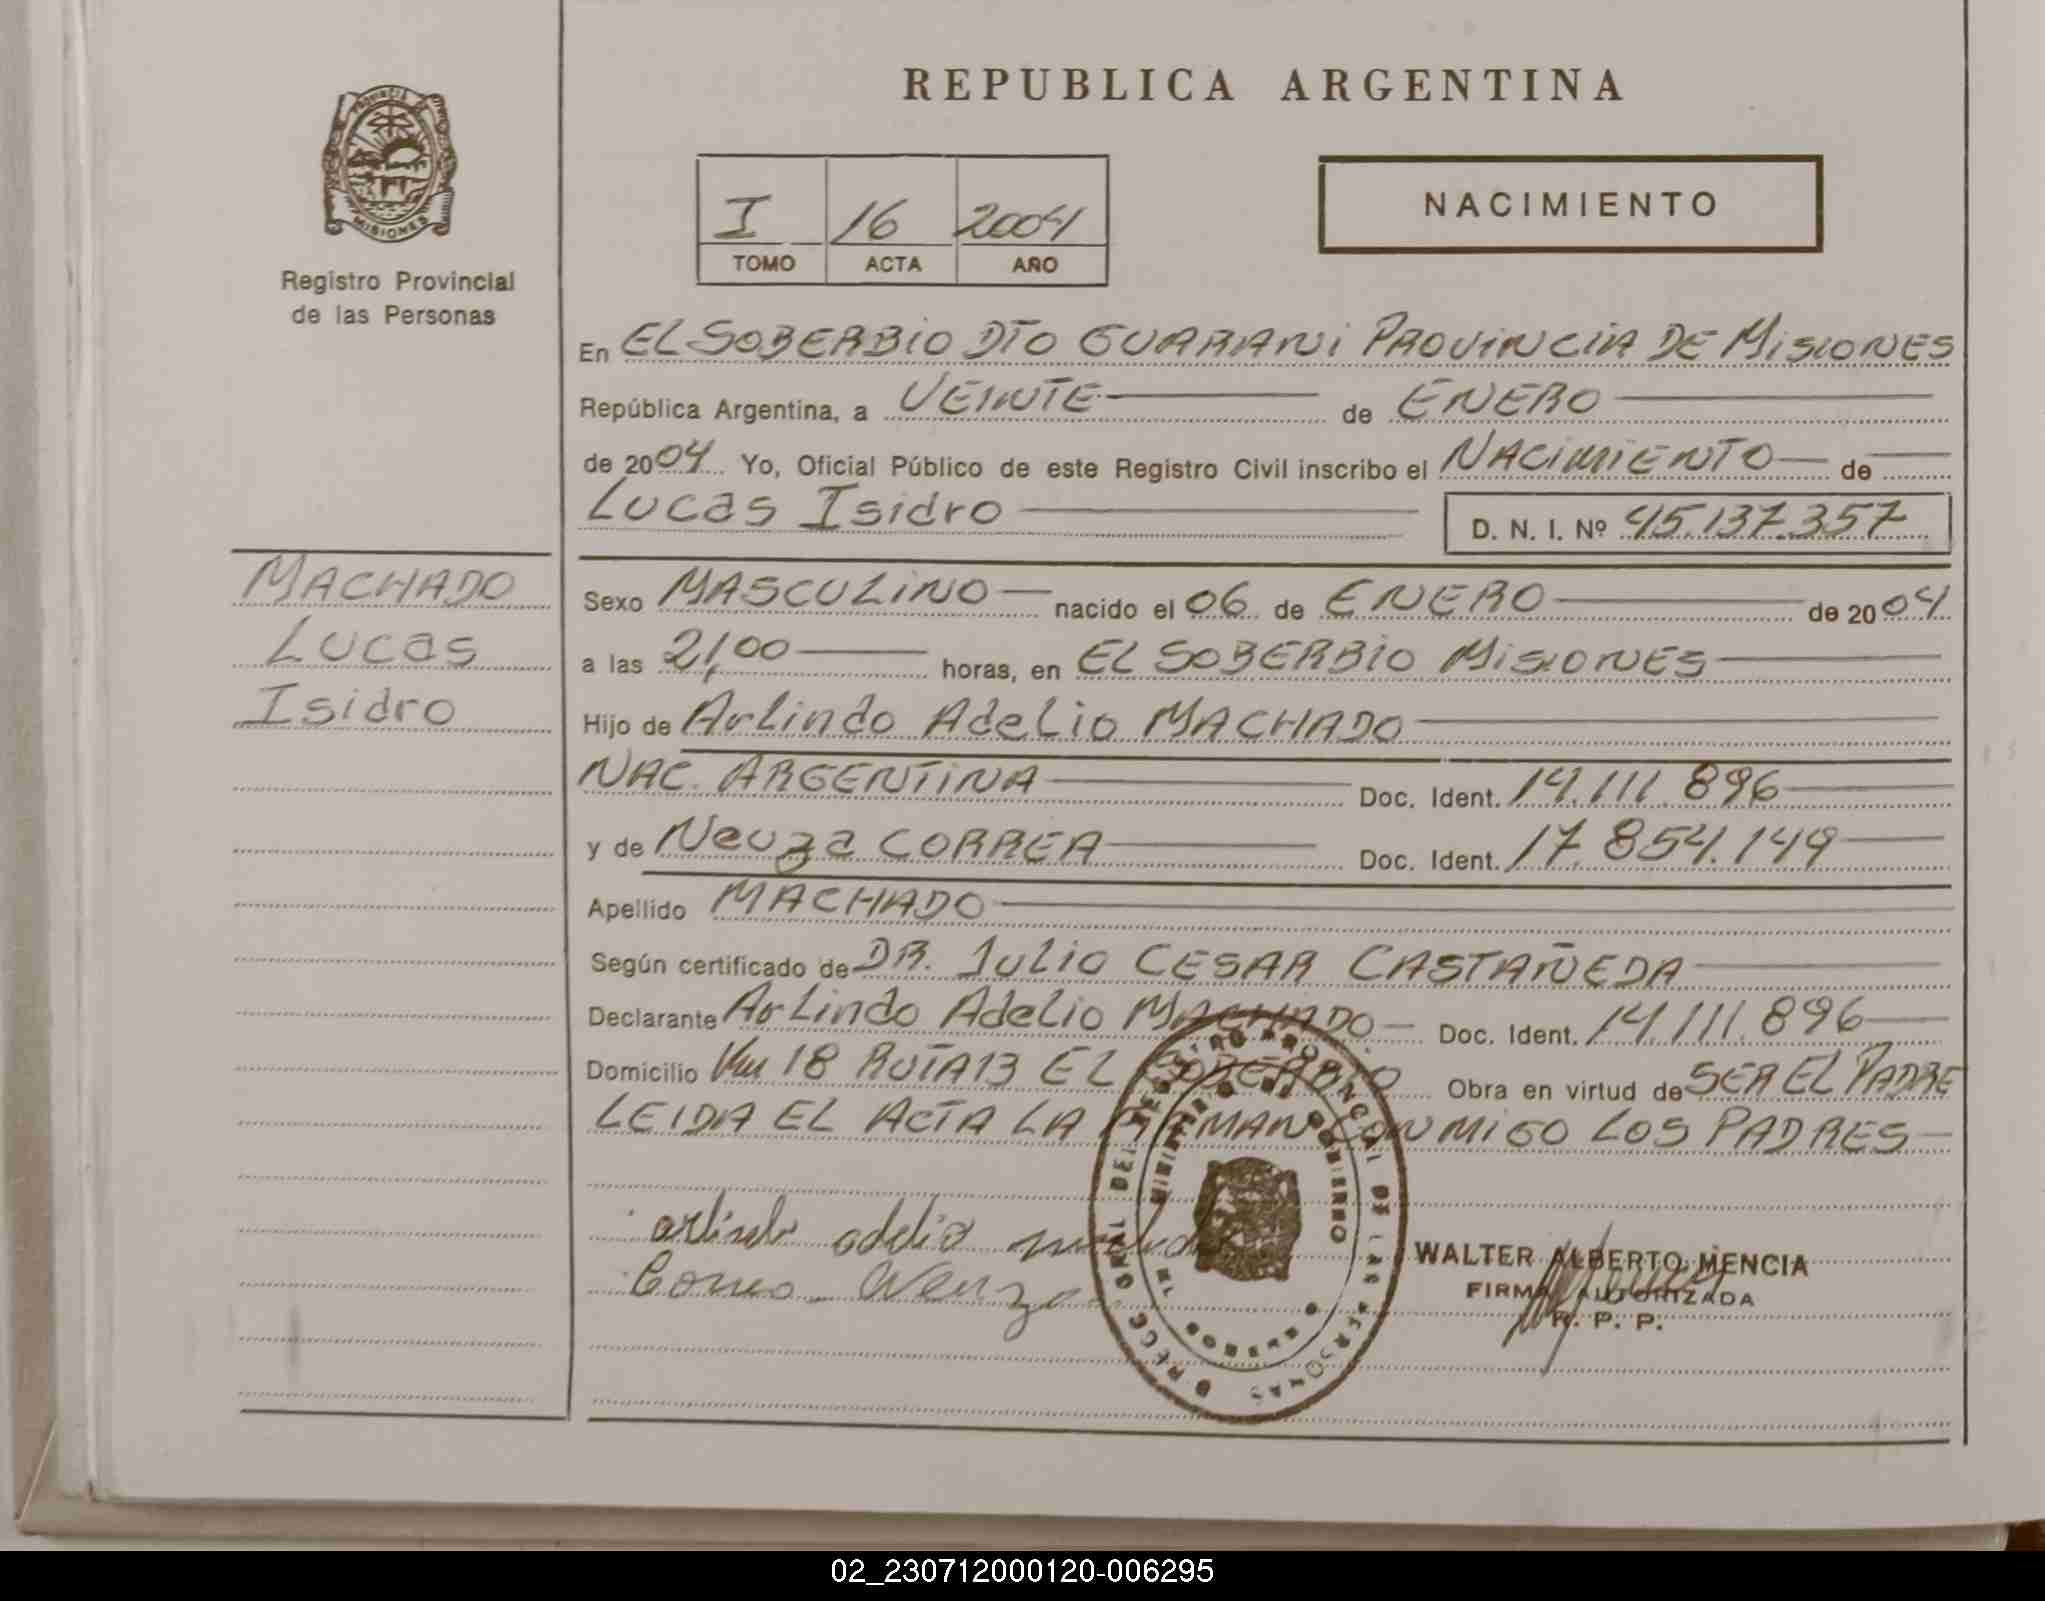 REPUBLICA ARGENTINA
PROVINCIA DE
MISIONES
Registro Provincial
de las Personas
I 16 2004
TOMO ACTA AÑO
NACIMIENTO
En EL SOBERBIO DTO GUARANI PROVINCIA DE MISIONES
República Argentina, a VEINTE de ENERO
de 2004 Yo, Oficial Público de este Registro Civil inscribo el NACIMIENTO de
Lucas Isidro
D. N. I. Nº 45.137.357
MACHADO
Lucas
Isidro
Sexo MASCULINO nacido el 06 de ENERO de 2004
a las 21,00 horas, en EL SOBERBIO MISIONES
Hijo de Arlindo Adelio MACHADO
NAC. ARGENTINA Doc. Ident. 14.111.896
y de Neuza CORREA Doc. Ident. 17.854.149
Apellido MACHADO
Según certificado de DR. JULIO CESAR CASTAÑEDA
Declarante Arlindo Adelio MACHADO Doc. Ident. 14.111.896
Domicilio Km 18 RUTA 13 EL SOBERBIO Obra en virtud de SER EL PADRE
LEIDA EL ACTA LA FIRMAN CONMIGO LOS PADRES
arlindo adelio machado
Correa Neuza
WALTER ALBERTO MENCIA
FIRMA AUTORIZADA
R. P. P.
02_230712000120-006295